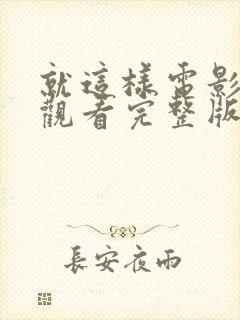 就這樣電影
觀看完整版
長安夜雨